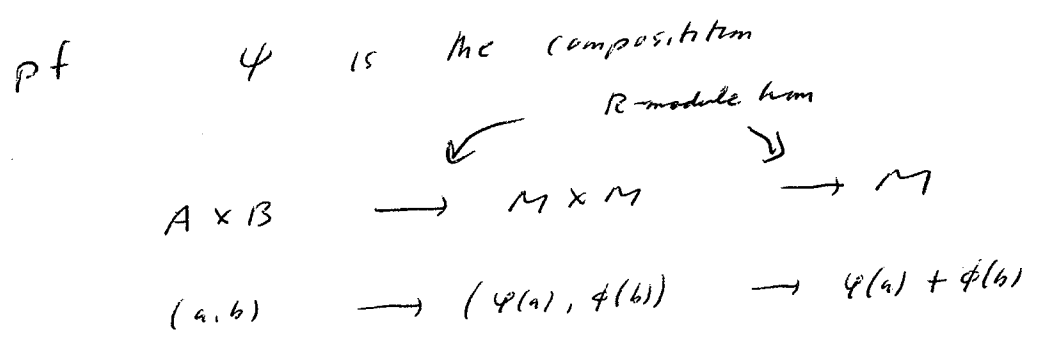 pf ψ is the compositition
R-module hom
A × B → M × M → M
(a, b) → (φ(a), ϕ(b)) → φ(a) + ϕ(b)